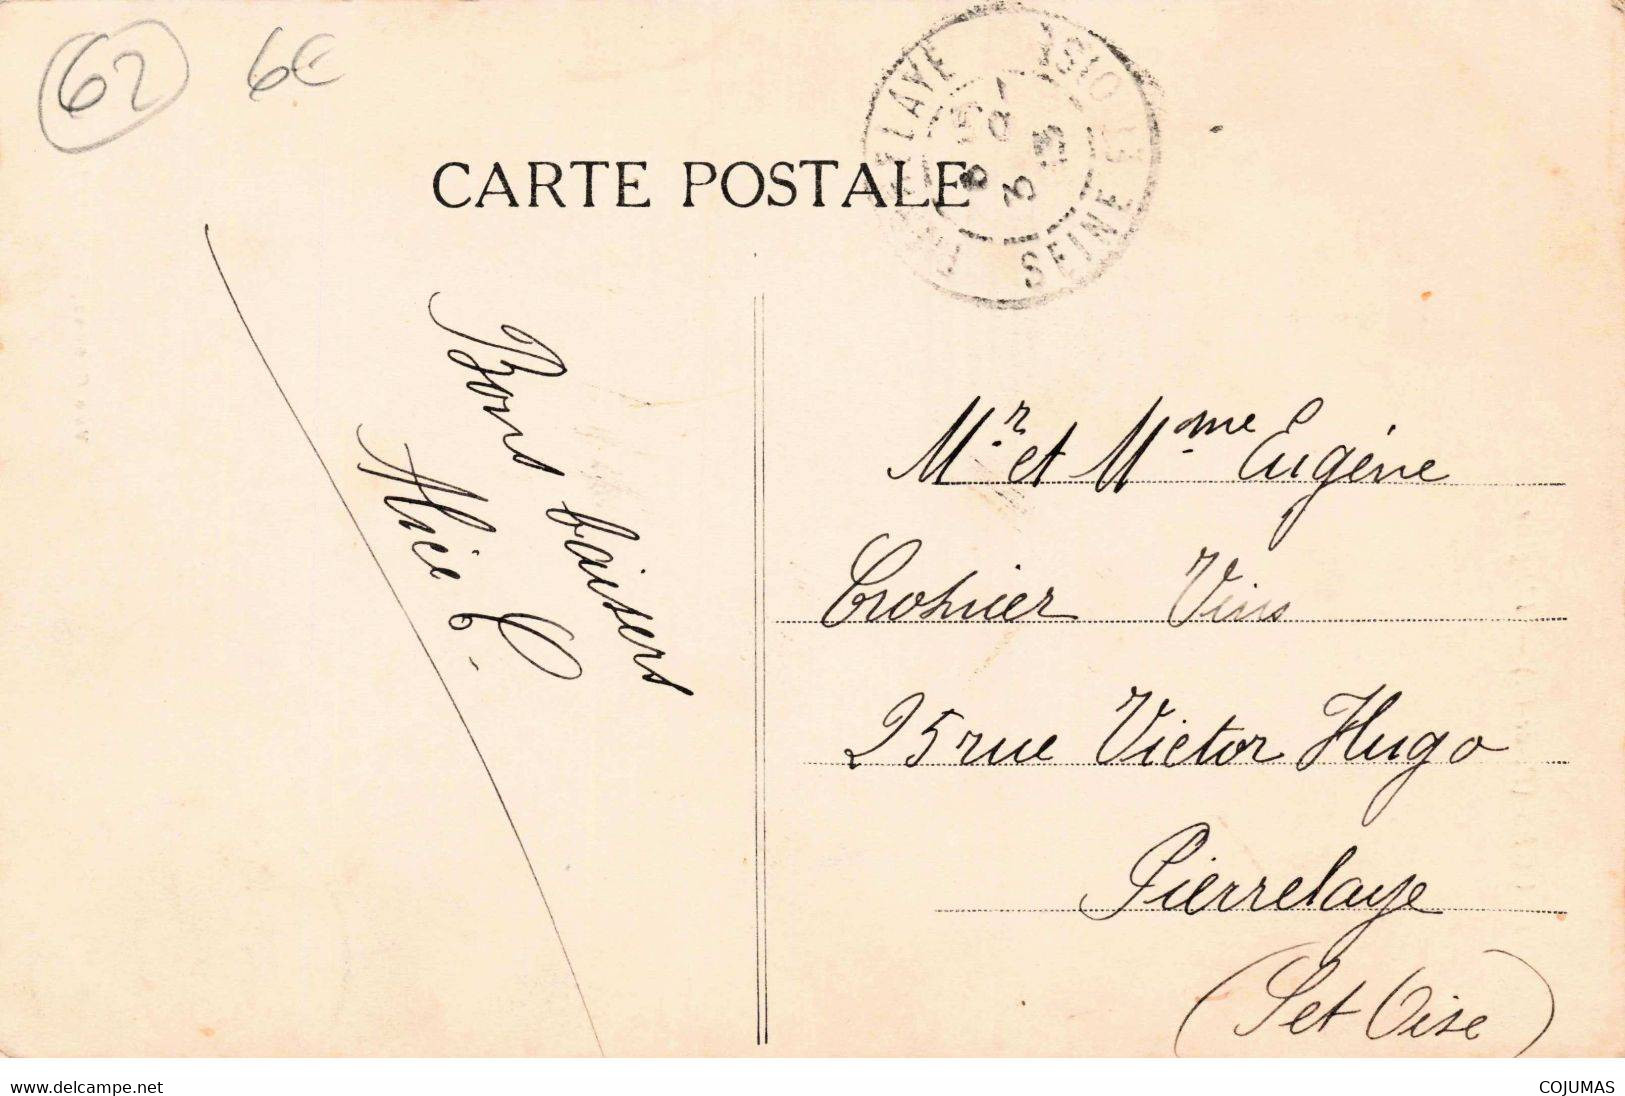 62 6€
CARTE POSTALE
SEINE ET OISE
Bons baisers
Alice C.
Mr. et Mme Eugène
Vins
25 rue Victor Hugo
Pierrelaye
(S et Oise)
www.delcampe.net
COJUMAS